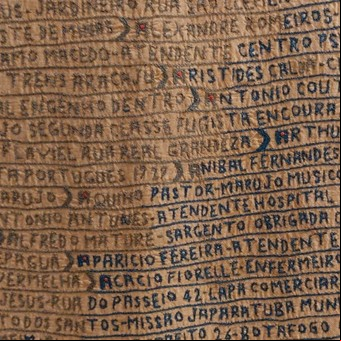 US-JARDINEIRO RUA SÃO CLEMEN
STE DE MINAS ALEXANDRE ROMEIROS-
AMO MACEDO-ATENDENTE CENTRO PS
TRENS ARACAJU ARISTIDES CALDA-C
AL ENGENHO DENTRO ANTONIO COUT
JO SEGUNDA CLASSE FUGISTA ENCOURA
FLAVIEL RUA REAL GRANDEZA ARTHU
TA PORTUGUES ANIBAL FERNANDES
ARUJO AQUINO PASTOR-MARUJO MUSICO
NTONIO ANTUNES-ATENDENTE HOSPITAL
ALFREDO MATURE-SARGENTO OBRIGADA
EPAGUA APARICIO FEREIRA-ATENDENTE
VERMELHA ACACIO FIORELLE-ENFERMEIRO
JESUS-RUA DO PASSEIO 42-LAPA COMERCIAR
TODOS SANTOS-MISSÃO JAPARATUBA MUN
EITO 26-BOTAFOGO